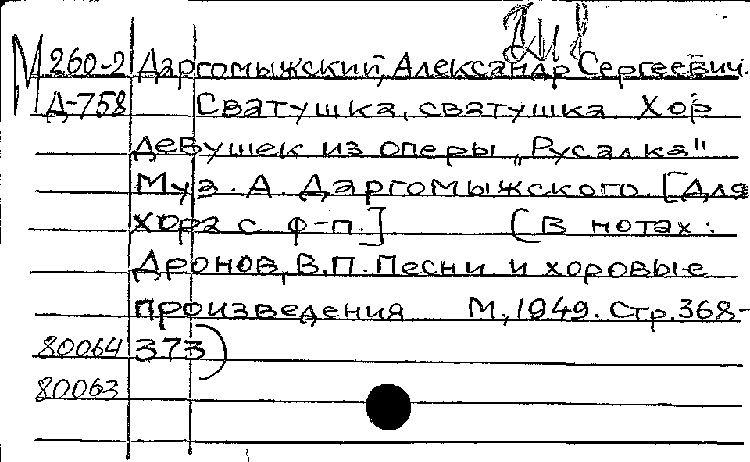 М 260-2 Даргомыжский, Александр Сергеевич.
Д-758 Сватушка, сватушка. Хор
девушек из оперы „Русалка"
Муз. А. Даргомыжского. [Для
хора с ф-п.] (В нотах:
Дронов, В.П. Песни и хоровые
произведения М., 1949. Стр. 368-
80064 373)
80063